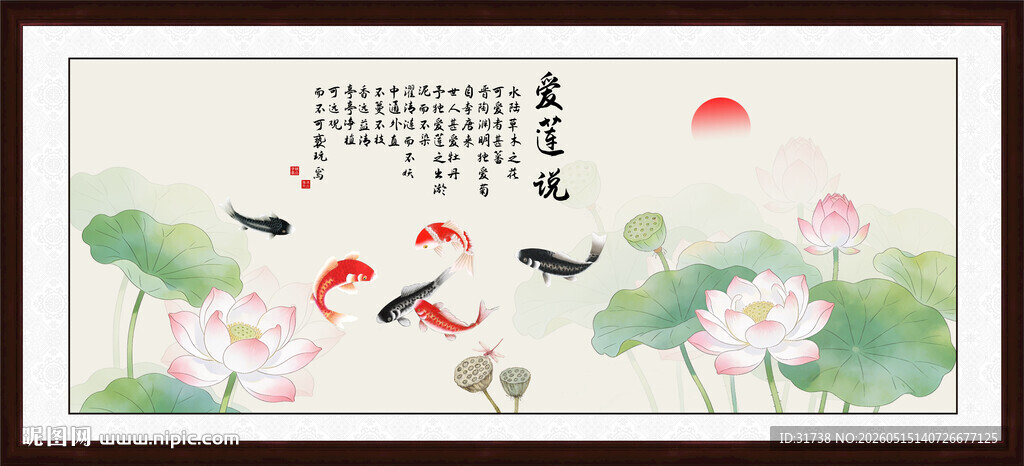 爱莲说
水陆草木之花
可爱者甚蕃
晋陶渊明独爱菊
自李唐来
世人甚爱牡丹
予独爱莲之出淤
泥而不染
濯清涟而不妖
中通外直
不蔓不枝
香远益清
亭亭净植
可远观
而不可亵玩焉
昵图网 www.nipic.com
ID:31738 NO:20260515140726677125